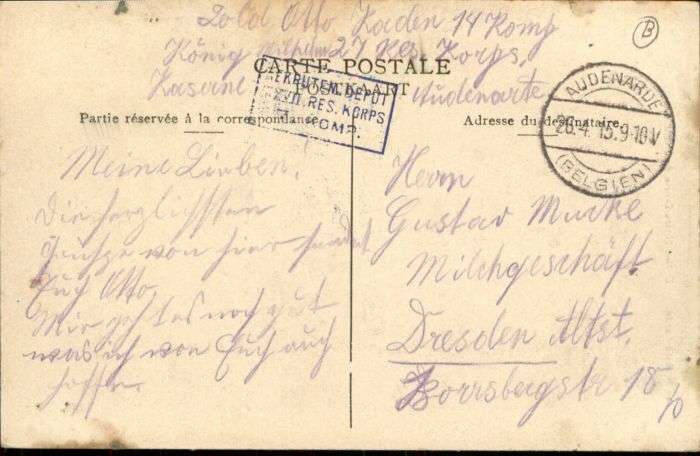 Sold Otto Zaden 14 Komp
König Wilhelm 27 Res Korps.
Kaserne Audenarde
CARTE POSTALE
POSTKAART
REKRUTEN-DEPOT
XXVII. RES. KORPS
KOMP.
AUDENARDE
26.4.15. 9-10V
(BELGIEN)
B
Partie réservée à la correspondance
Adresse du destinataire
Meine Lieben.
Die herzlichsten
Grüße von hier sendet
Euch Otto.
Mir geht es noch gut
was ich von Euch auch
hoffe.
Herrn
Gustav Mucke
Milchgeschäft
Dresden Altst.
Borrsbergstr 18